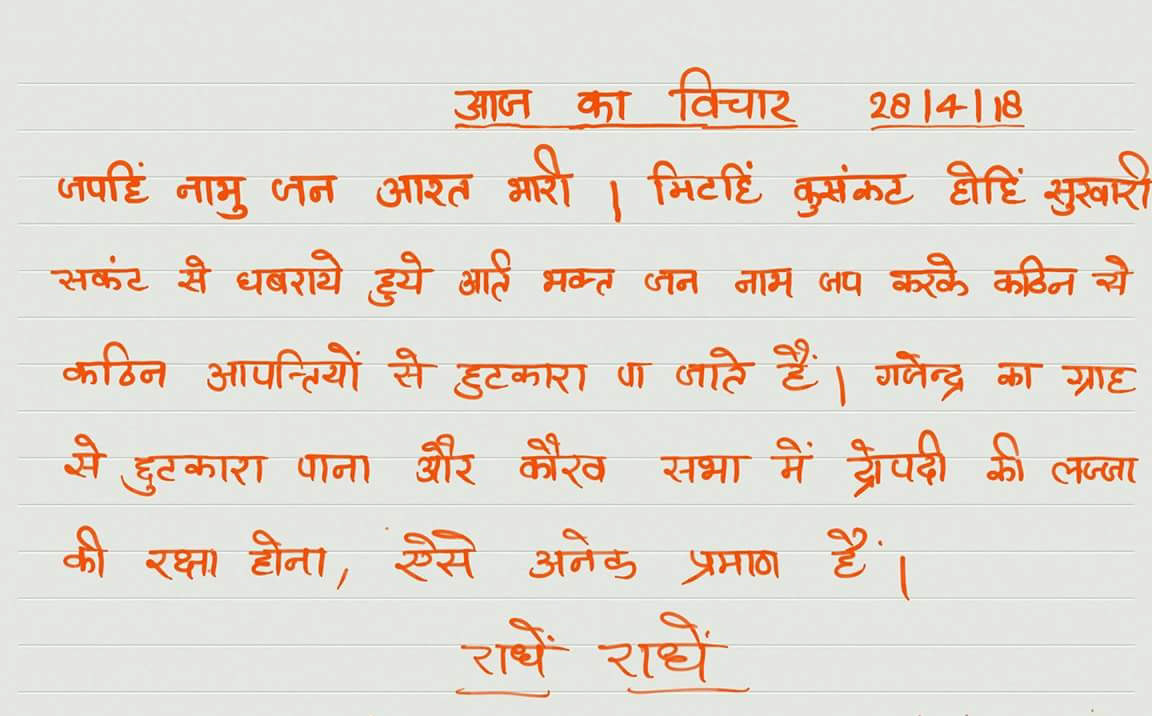 आज का विचार 28/4/18
जपहिं नामु जन आरत भारी । मिटहिं कुसंकट होहिं सुखारी
सकंट से घबराये हुये आर्त भक्त जन नाम जप करके कठिन से
कठिन आपत्तियों से छुटकारा पा जाते हैं । गजेन्द्र का ग्राह
से छुटकारा पाना और कौरव सभा में द्रोपदी की लज्जा
की रक्षा होना, ऐसे अनेक प्रमाण हैं ।
राधें राधें